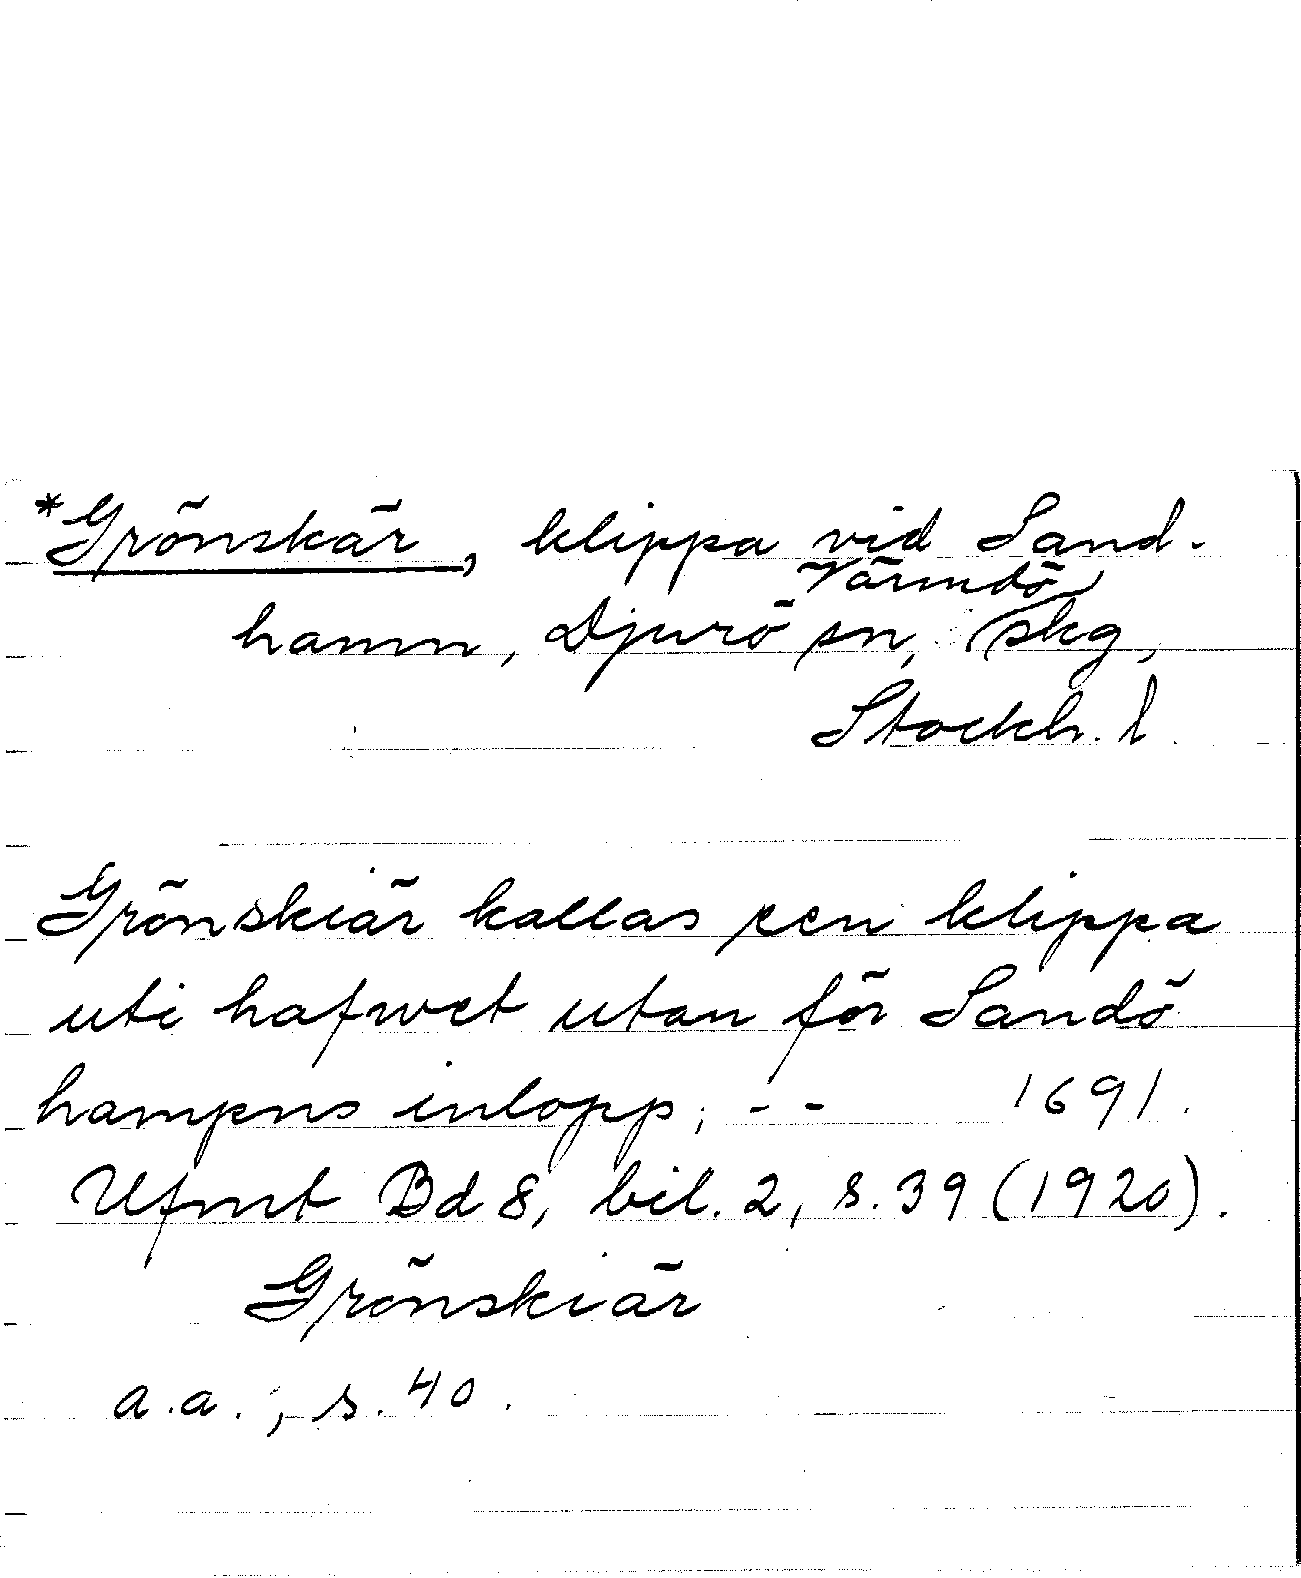 *Grönskär, klippa vid Sand-
hamn, Djurö sn, Värmdö skg,
Stockh. l.
Grönskiär kallas een klippa
uti hafwet utan för Sandö
hampns inlopp, - - 1691.
Ufmt Bd 8, bil. 2, s. 39 (1920).
Grönskiär
a.a., s. 40.